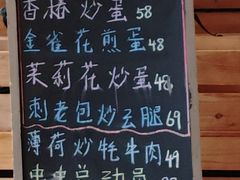 香椿炒蛋58
金雀花煎蛋48
茉莉花炒蛋48
刺老包炒云腿69
薄荷炒牦牛肉49
虫虫总动员